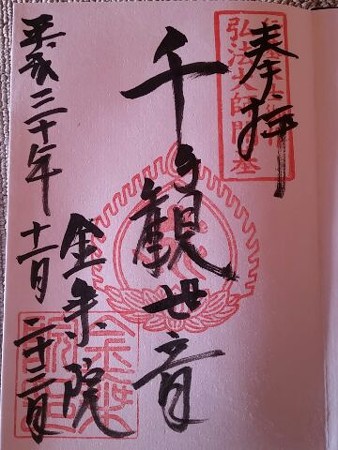 奉拝
弘法大師開基
千手観世音
金乗院
平成三十年十一月二十三日